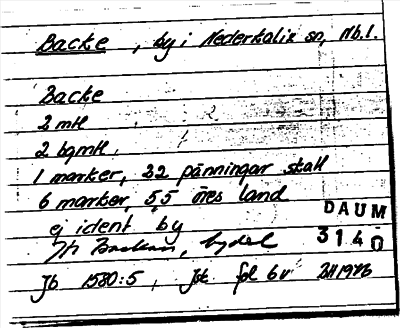 Backe, by i Nederkalix sn, Nb.l.
Backe
2 mtl
2 bgmtl
1 marker, 22 pänningar skatt
6 marker, 5,5 öres land
ej ident by
DAUM
3140
Jb 1580:5, fol 6v BH1976